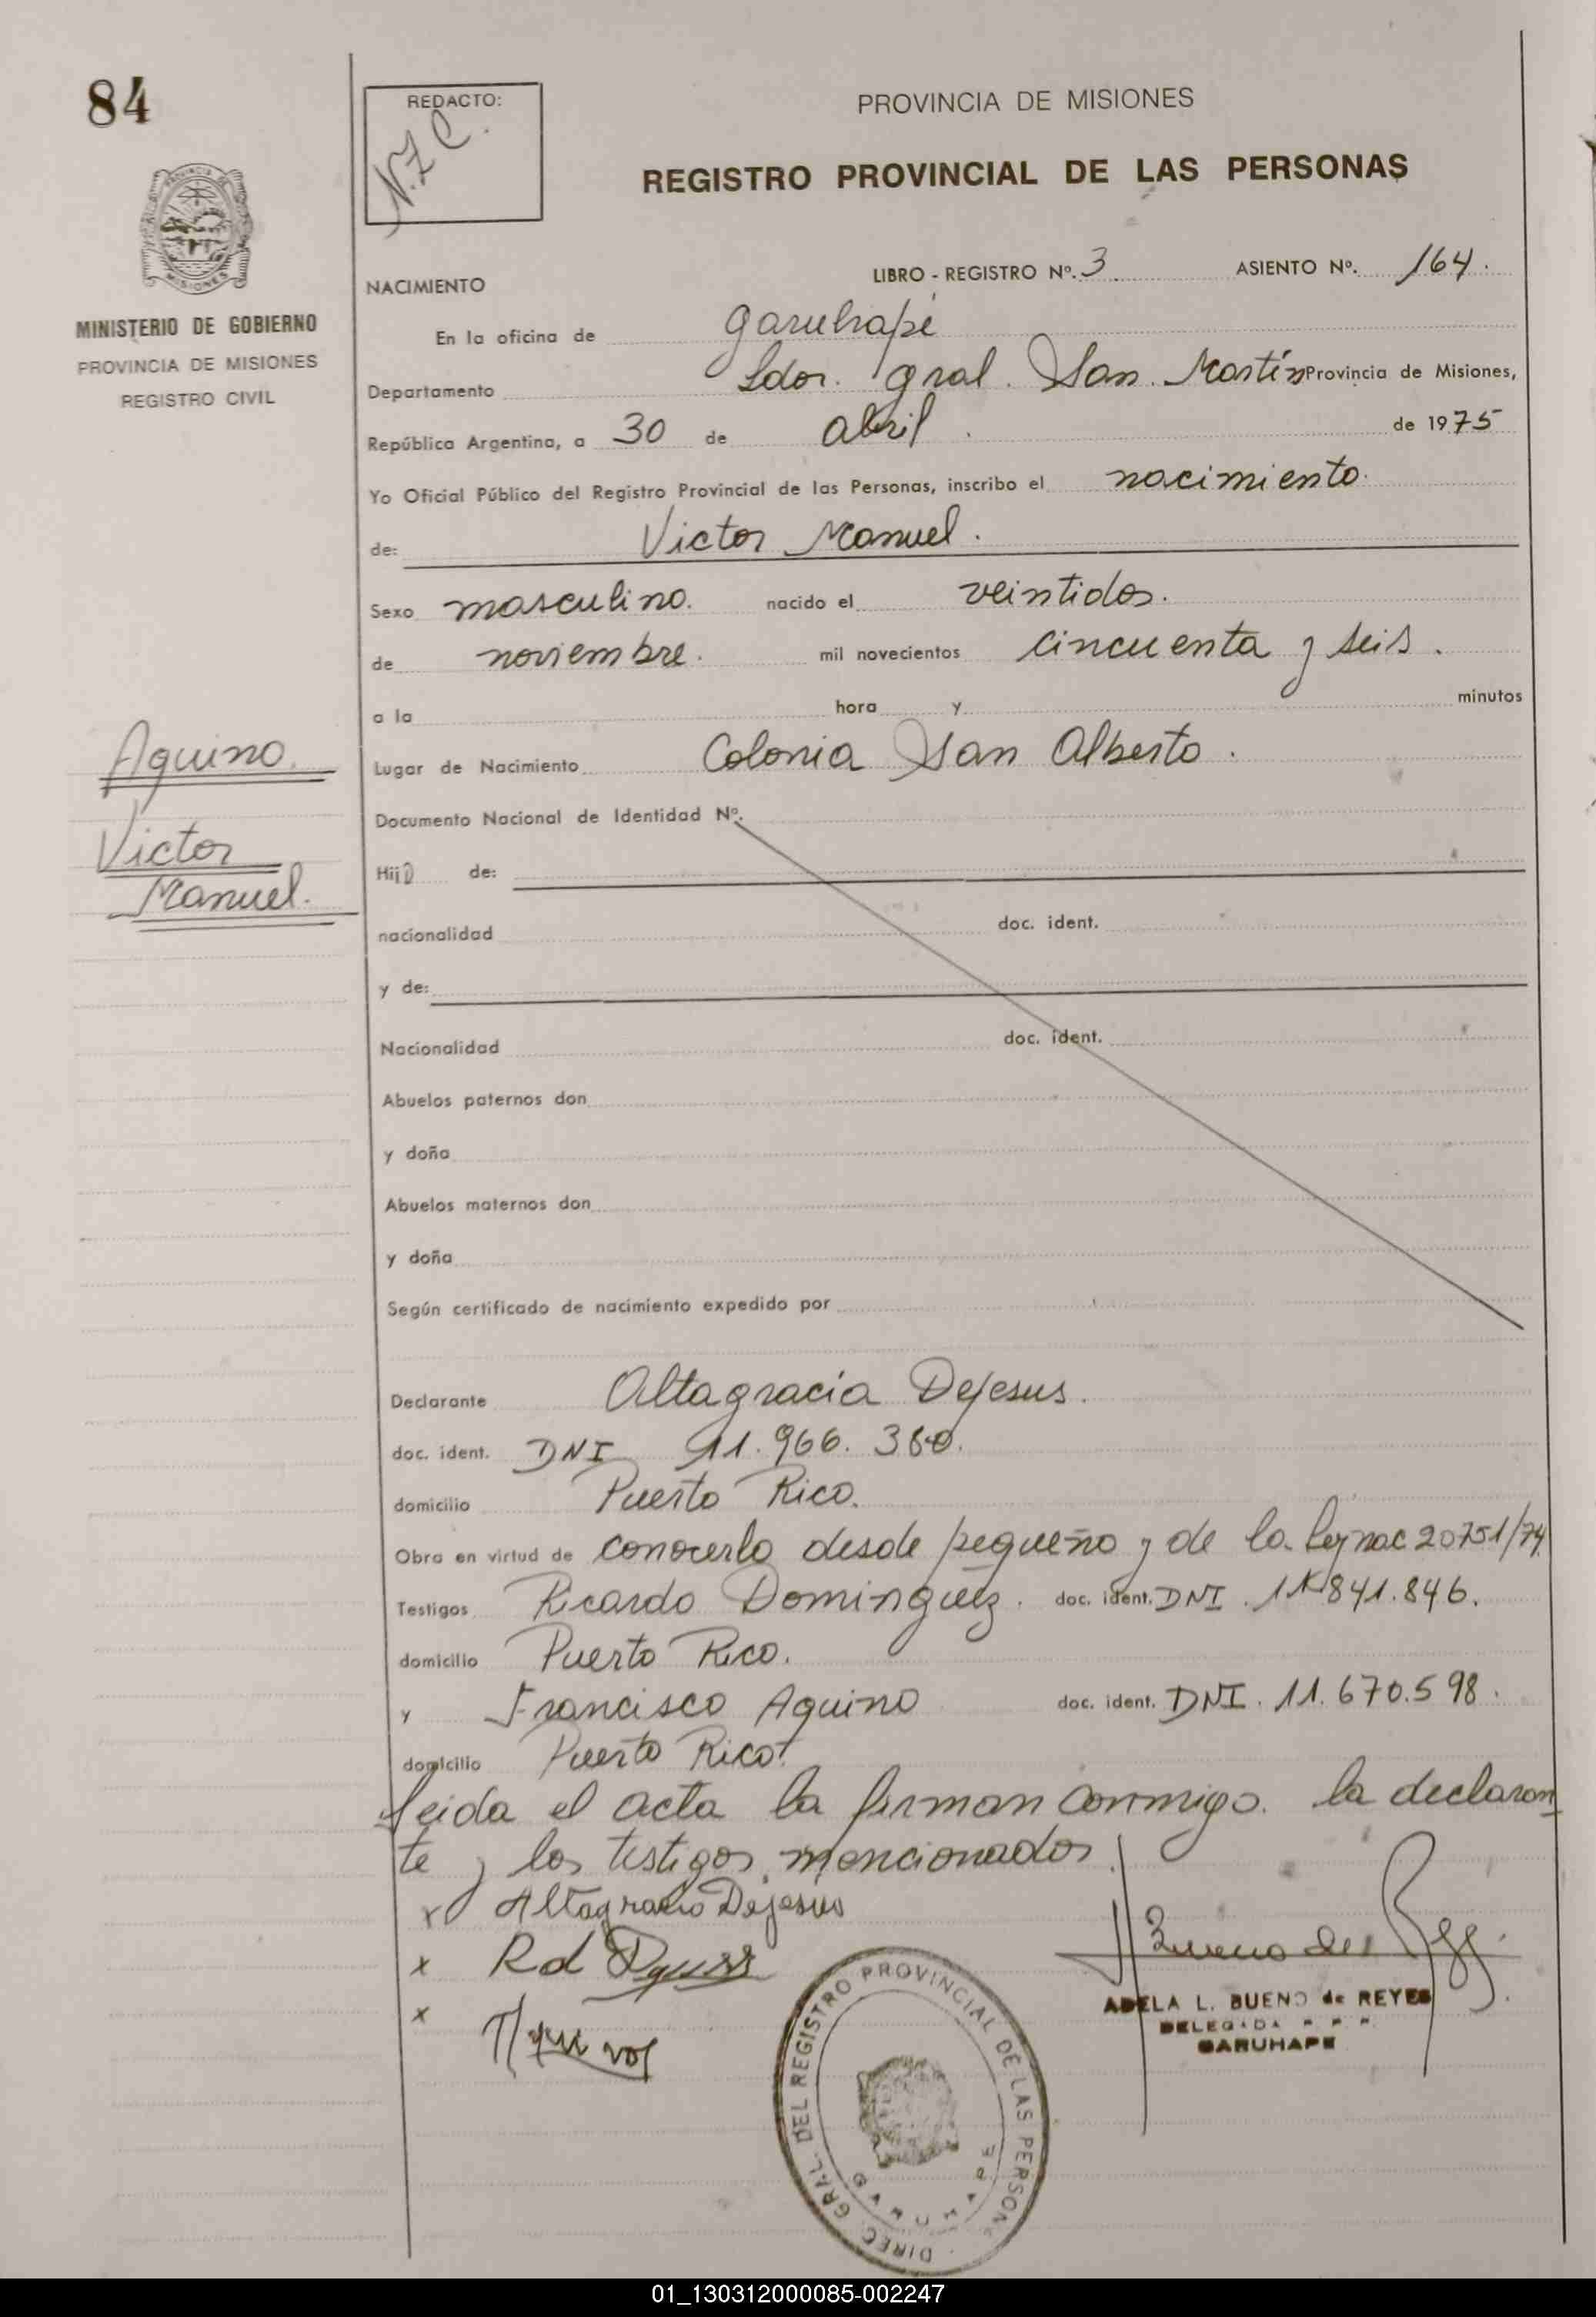 84
REDACTO:
N.Z C.
PROVINCIA DE MISIONES
REGISTRO PROVINCIAL DE LAS PERSONAS
MISIONES
MINISTERIO DE GOBIERNO
PROVINCIA DE MISIONES
REGISTRO CIVIL
LIBRO - REGISTRO Nº. 3 ASIENTO Nº. 164.
NACIMIENTO
En la oficina de Garuhapé
Departamento Ldor. Gral. San Martín Provincia de Misiones,
República Argentina, a 30 de abril. de 1975
Yo Oficial Público del Registro Provincial de las Personas, inscribo el nacimiento.
de: Victor Manuel.
Sexo masculino. nacido el veintidos.
de noviembre. mil novecientos cincuenta y seis.
a la hora y minutos
Aquino.
Victor
Manuel.
Lugar de Nacimiento Colonia San Alberto.
Documento Nacional de Identidad Nº.
Hijo de:
nacionalidad doc. ident.
y de:
Nacionalidad doc. ident.
Abuelos paternos don
y doña
Abuelos maternos don
y doña
Según certificado de nacimiento expedido por
Declarante Altagracia Dejesus.
doc. ident. DNI 11.966.380.
domicilio Puerto Rico.
Obra en virtud de conocerlo desde pequeño y de la Ley nac 20751/74
Testigos Ricardo Dominguez. doc. ident. DNI. 841.846.
domicilio Puerto Rico.
y Francisco Aquino doc. ident. DNI. 11.670.598.
domicilio Puerto Rico.
Leida el acta la firman conmigo. la declaran
te y los testigos mencionados.
x Altagracia Dejesus
x Rd
x
Bueno de
ADELA L. BUENO de REYES
DELEGADA R. P. P.
GARUHAPE
DIREC. GRAL. DEL REGISTRO PROVINCIAL DE LAS PERSON
GARUHAPE
01_130312000085-002247